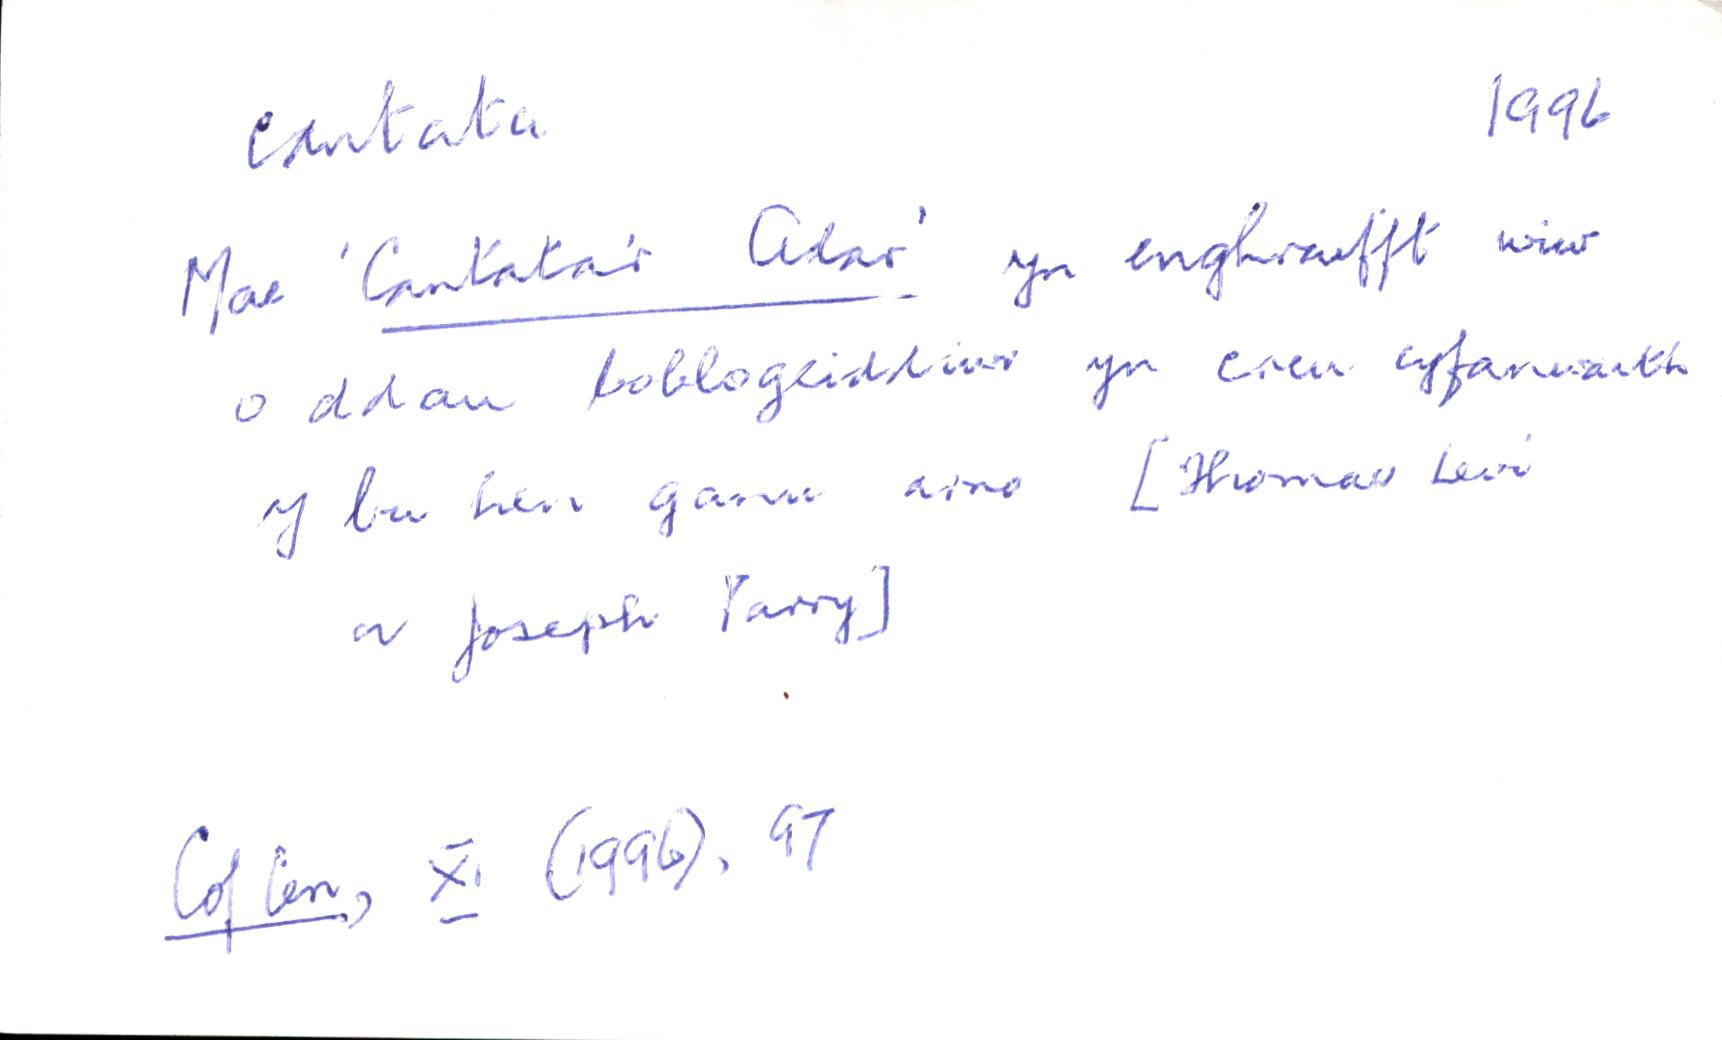 cantata 1996
Mae 'Cantata'r Adar' yn enghraifft wiw
o ddau boblogeiddiwr yn creu cyfanwaith
y bu hen ganu arno [Thomas Levi
a Joseph Parry]
Cof Cen, XI (1996), 97